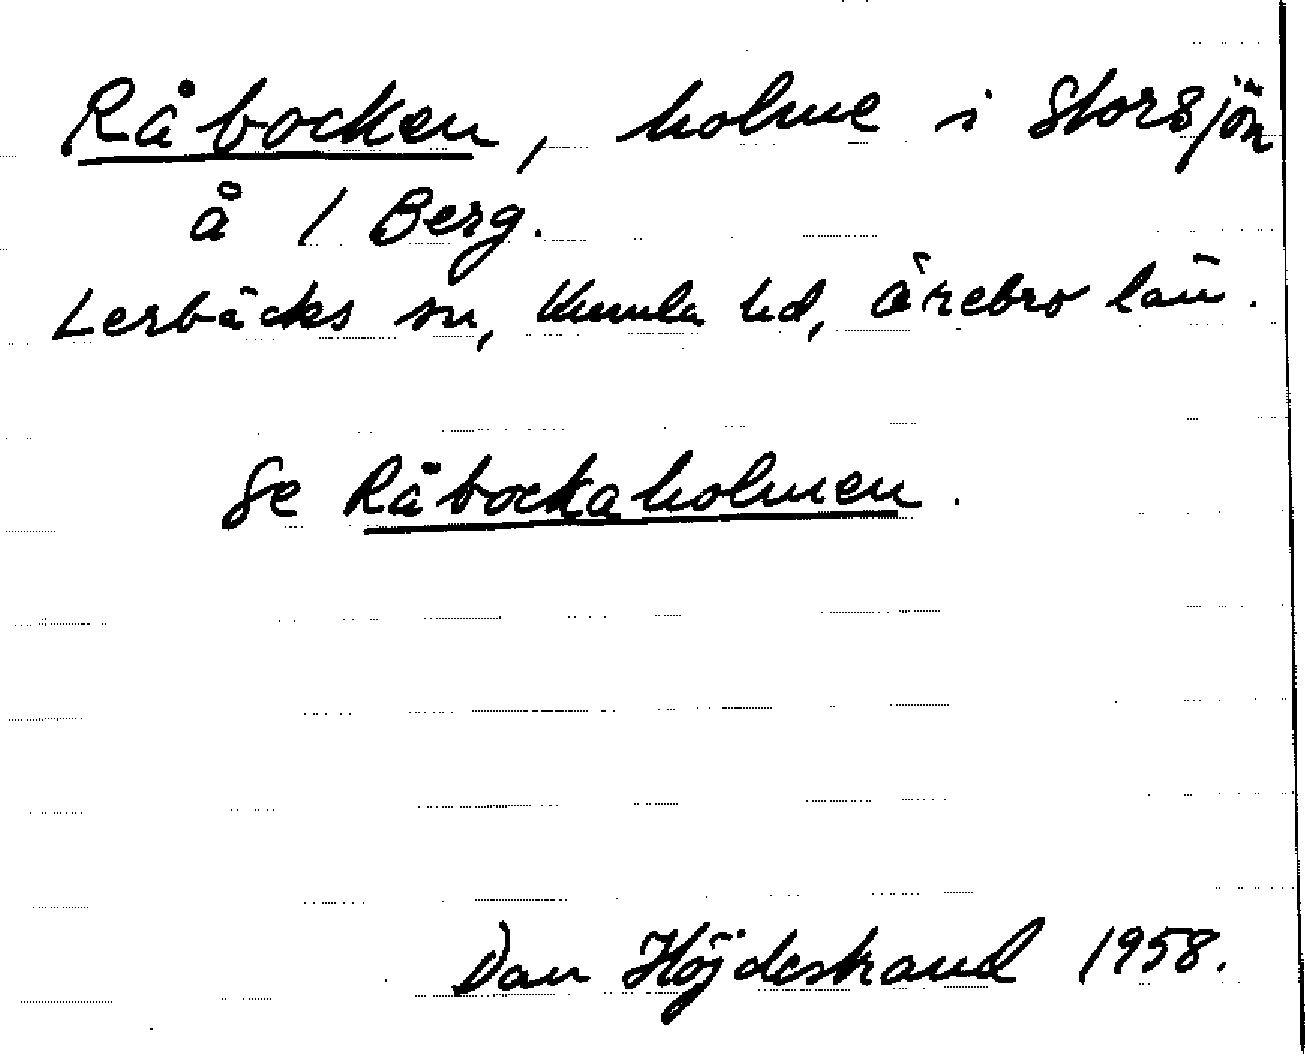 Råbocken, holme i Storsjön
å 1 Berg.
Lerbäcks sn, Kumla hd, Örebro län.
Se Råbockaholmen.
Dan Höjdestrand 1958.